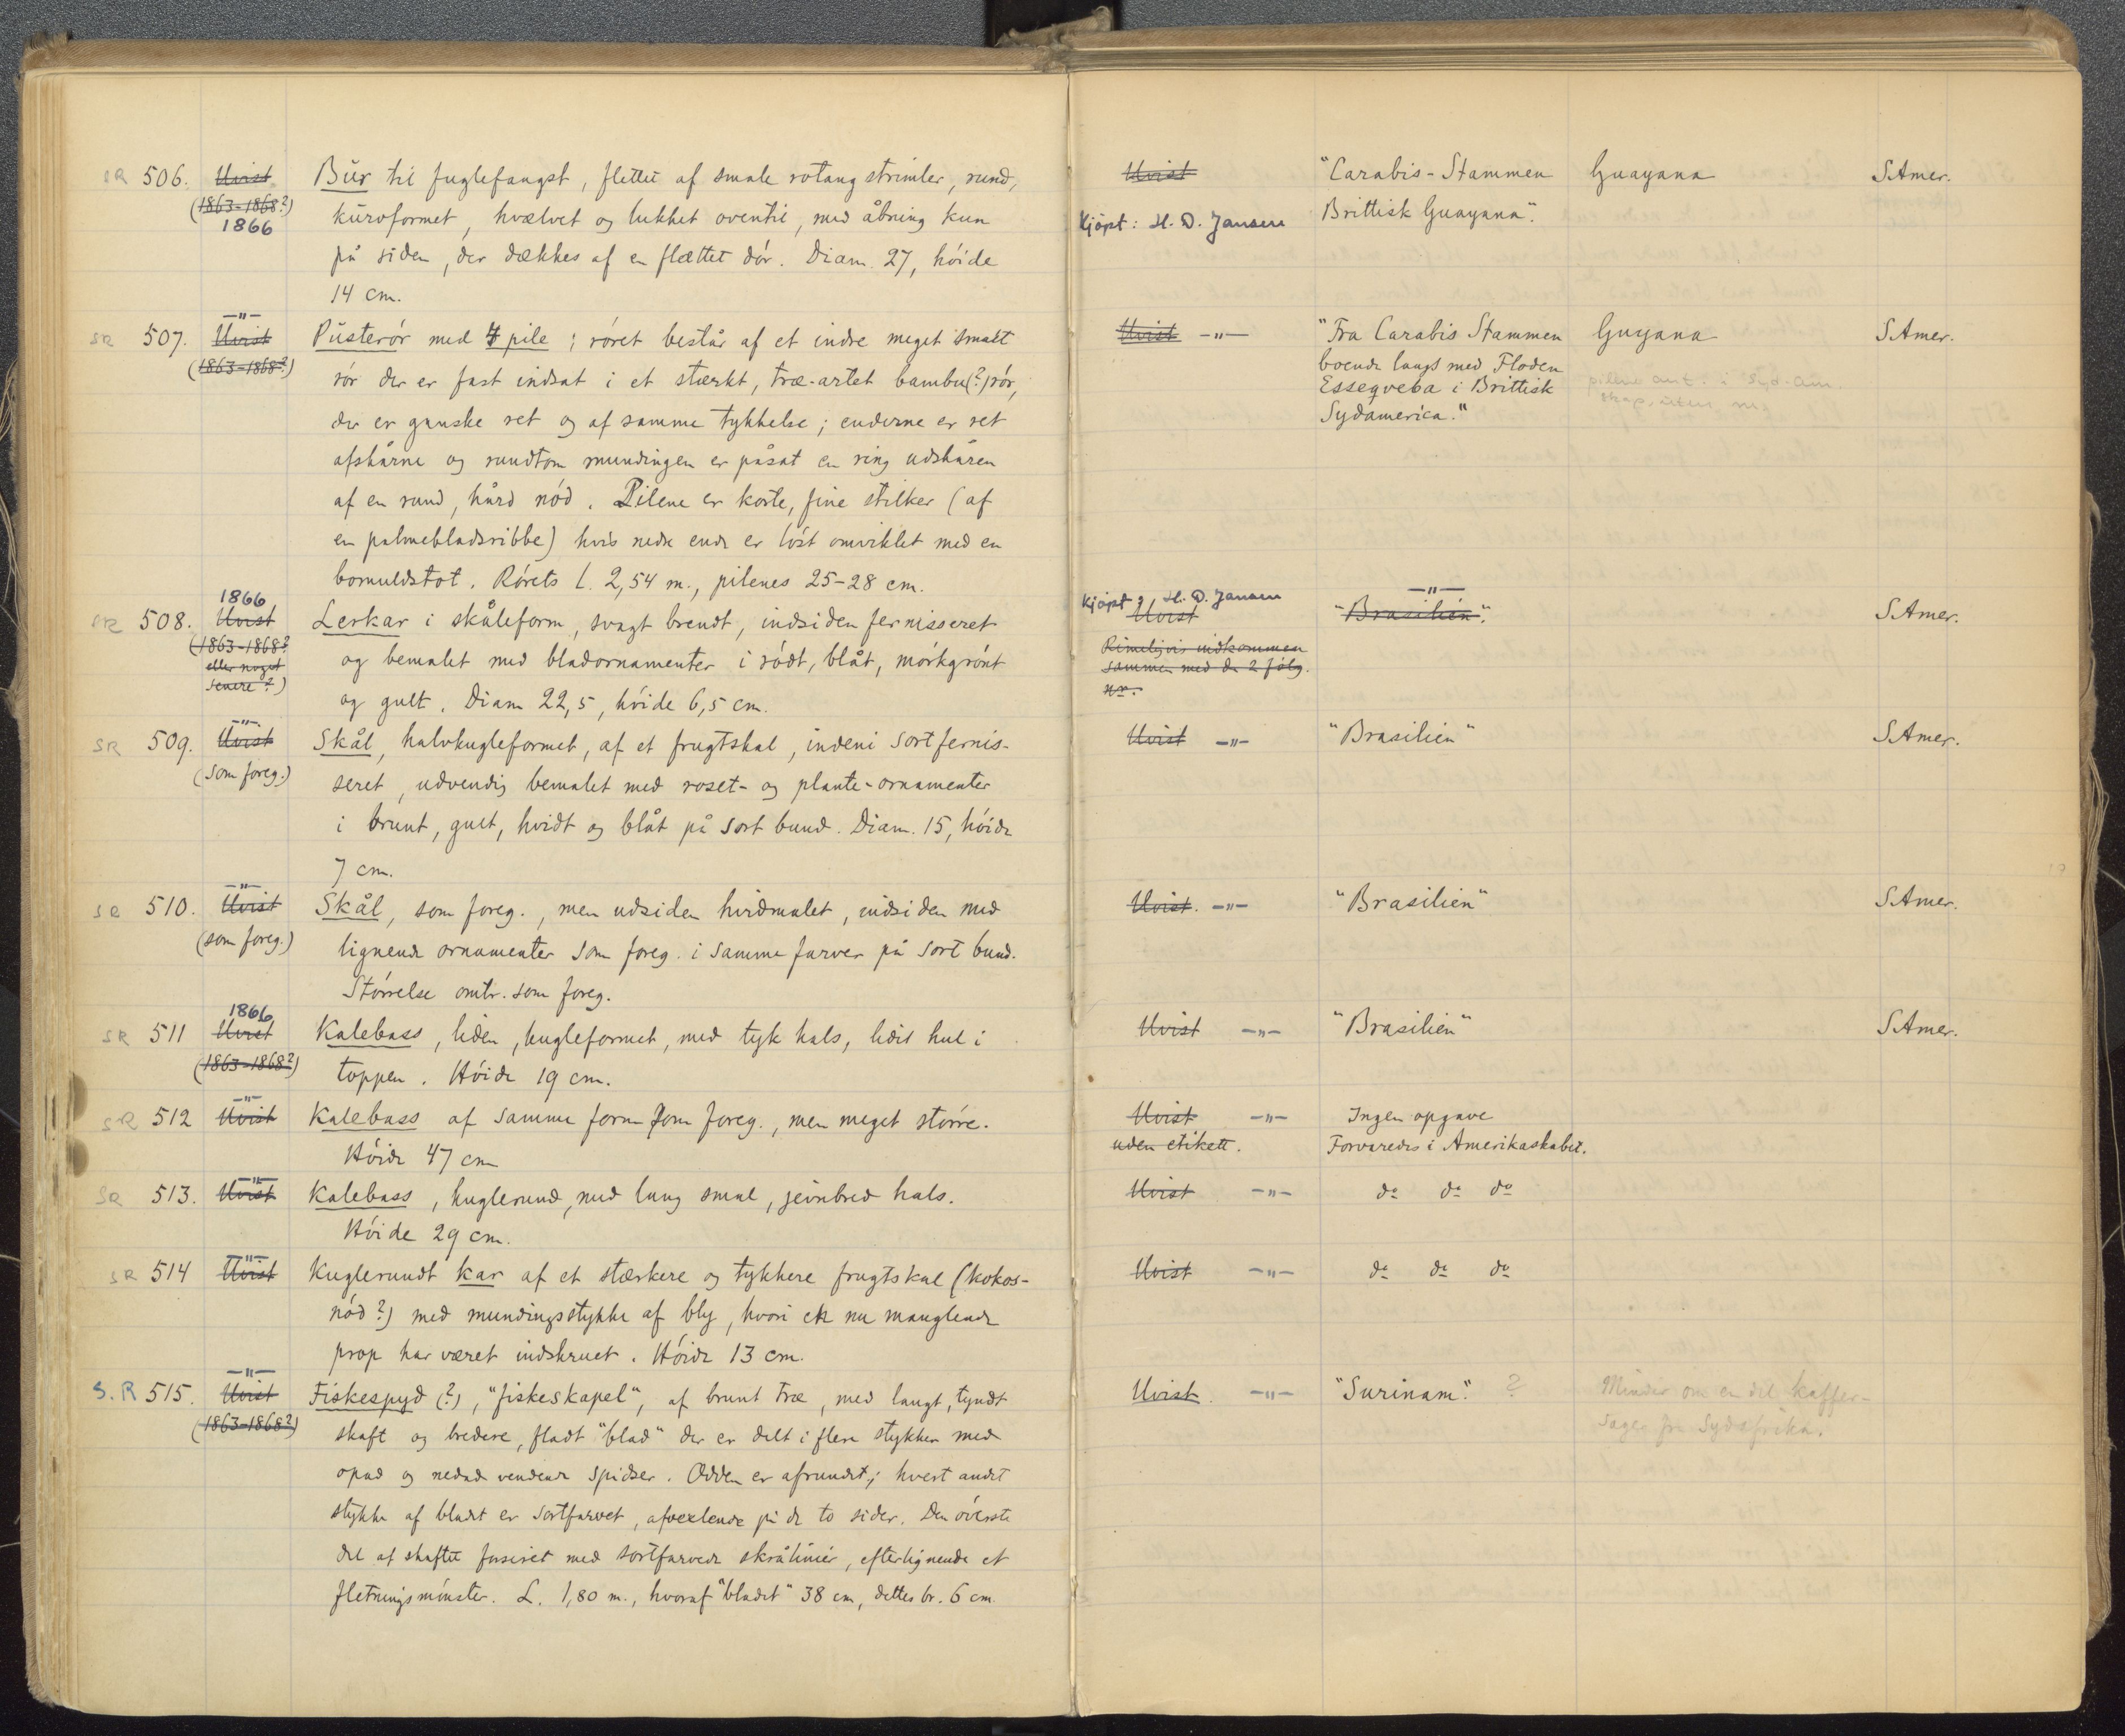 SR 506. Uvist Bur til fuglefangst, flettet af smale rotang strimler, rund,
(1863-1868?) kurvformet, hvælvet og lukket oventil, med åbning kun
1866
på siden, der dækkes af en flættet dór. Diam. 27, hóide
14 cm.
Uvist "Carabis-Stammen Guayana SAmer.
Kjöpt: H. D. Jansen Brittisk Guayana".
-"-
SR 507. Uvist Pústerór med 4 pile; róret består af et indre meget smalt
(1863-1868?) rór der er fast indsat i et stærkt, træ-artet bambu(?)rór,
der er ganske ret og af samme tykkelse; enderne er ret
afskårne og rundtom mundingen er påsat en ring udskåren
af en rund, hård nód. Pilene er korte, fine stilker (af
en palmebladsribbe) hvis nedre ende er lóst omviklet med en
bomuldstot. Rórets l. 2,54 m., pilenes 25-28 cm.
Uvist -"- "Fra Carabis Stammen Guyana SAmer.
boende langs med Floden
Esseqveba i Brittisk
Sydamerica."
1866
SR 508. Uvist Lerkar i skåleform, svagt brendt, indsiden fernisseret
(1863-1868? og bemalet med bladornamenter i ródt, blåt, mórkgrónt
eller noget
senere?) og gult. Diam 22,5, hóide 6,5 cm.
Kjöpt: H. D. Jansen -"-
Uvist "Brasilien". SAmer.
Rimeligvis indkommen
sammen med de 2 fólg.
nr.
-"-
SR 509. Uvist Skål, halvkugleformet, af et frugtskal, indeni sort fernis-
(som foreg.) seret, udvendig bemalet med roset- og plante-ornamenter
i brunt, gult, hvidt og blåt på sort bund. Diam. 15, hóide
7 cm.
Uvist -"- "Brasilien" SAmer.
-"-
SR 510. Uvist Skål, som foreg., men udsiden hvidmalet, indsiden med
(som foreg.) lignende ornamenter som foreg. i samme farver på sort bund.
Stórrelse omtr. som foreg.
Uvist. -"- "Brasilien" SAmer.
1866
SR 511 Uvist Kalebass, liden, kugleformet, med tyk hals, lidet hul i
(1863-1868?) toppen. Hóide 19 cm.
Uvist -"- "Brasilien" SAmer.
-"-
SR 512 Uvist Kalebass af samme form som foreg., men meget stórre.
Hóide 47 cm
Uvist -"- Ingen opgave
uden etikett. Forvaredes i Amerikaskabet.
-"-
SR 513. Uvist Kalebass, kuglerund, med lang smal, jevnbred hals.
Hóide 29 cm.
Uvist -"- do do do
-"-
SR 514 Uvist Kuglerundt kar af et stærkere og tykkere frugtskal (kokos-
nód?) med mundingsstykke af bly, hvori en nu manglende
prop har været indskruet. Hóide 13 cm.
Uvist -"- do do do
-"-
S.R 515. Uvist Fiskespyd (?), "fiskeskapel", af brunt træ, med langt, tyndt
(1863-1868?) skaft og bredere, fladt "blad" der er delt i flere stykker med
opad og nedad vendende spidser. Odden er afrundet; hvert andet
stykke af bladet er sortfarvet, afvexlende på de to sider. Den óverste
del af skaftet forsiret med sortfarvede skrålinier, efterlignende et
fletningsmónster. L. 1,80 m., hvoraf "bladet" 38 cm, dettes br. 6 cm.
Uvist. -"- "Surinam". ? Minder om en del kaffer-
sager fra Sydafrika.